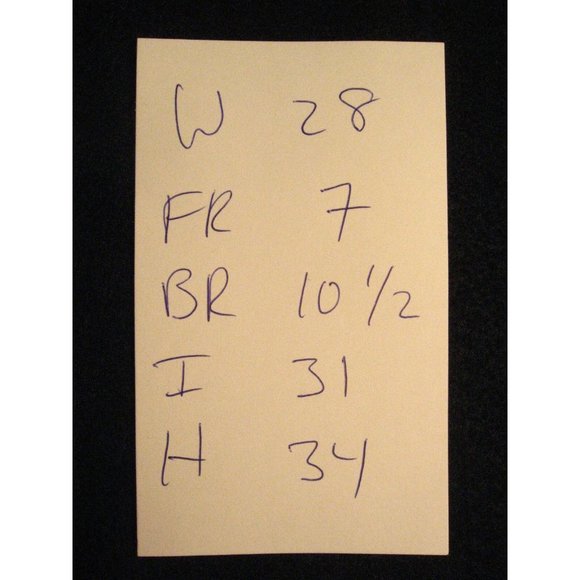 W 28
FR 7
BR 10 1/2
I 31
H 34